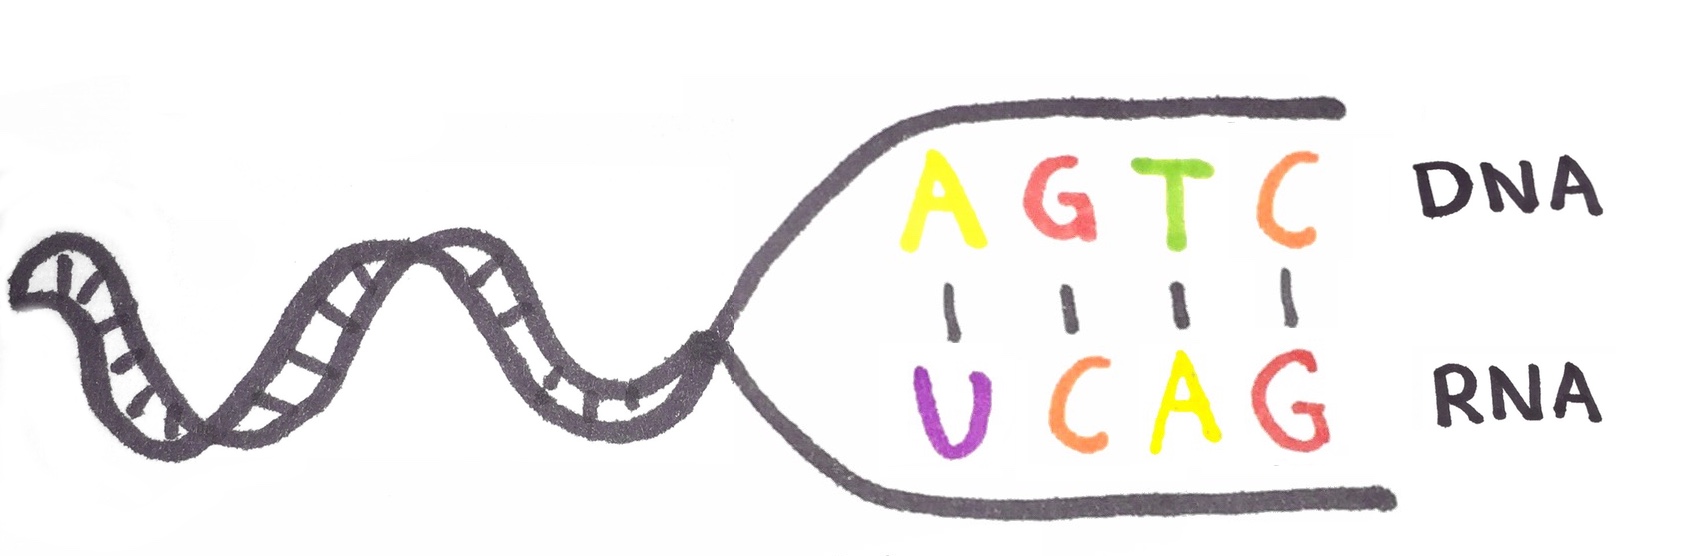 A G T C DNA
U C A G RNA